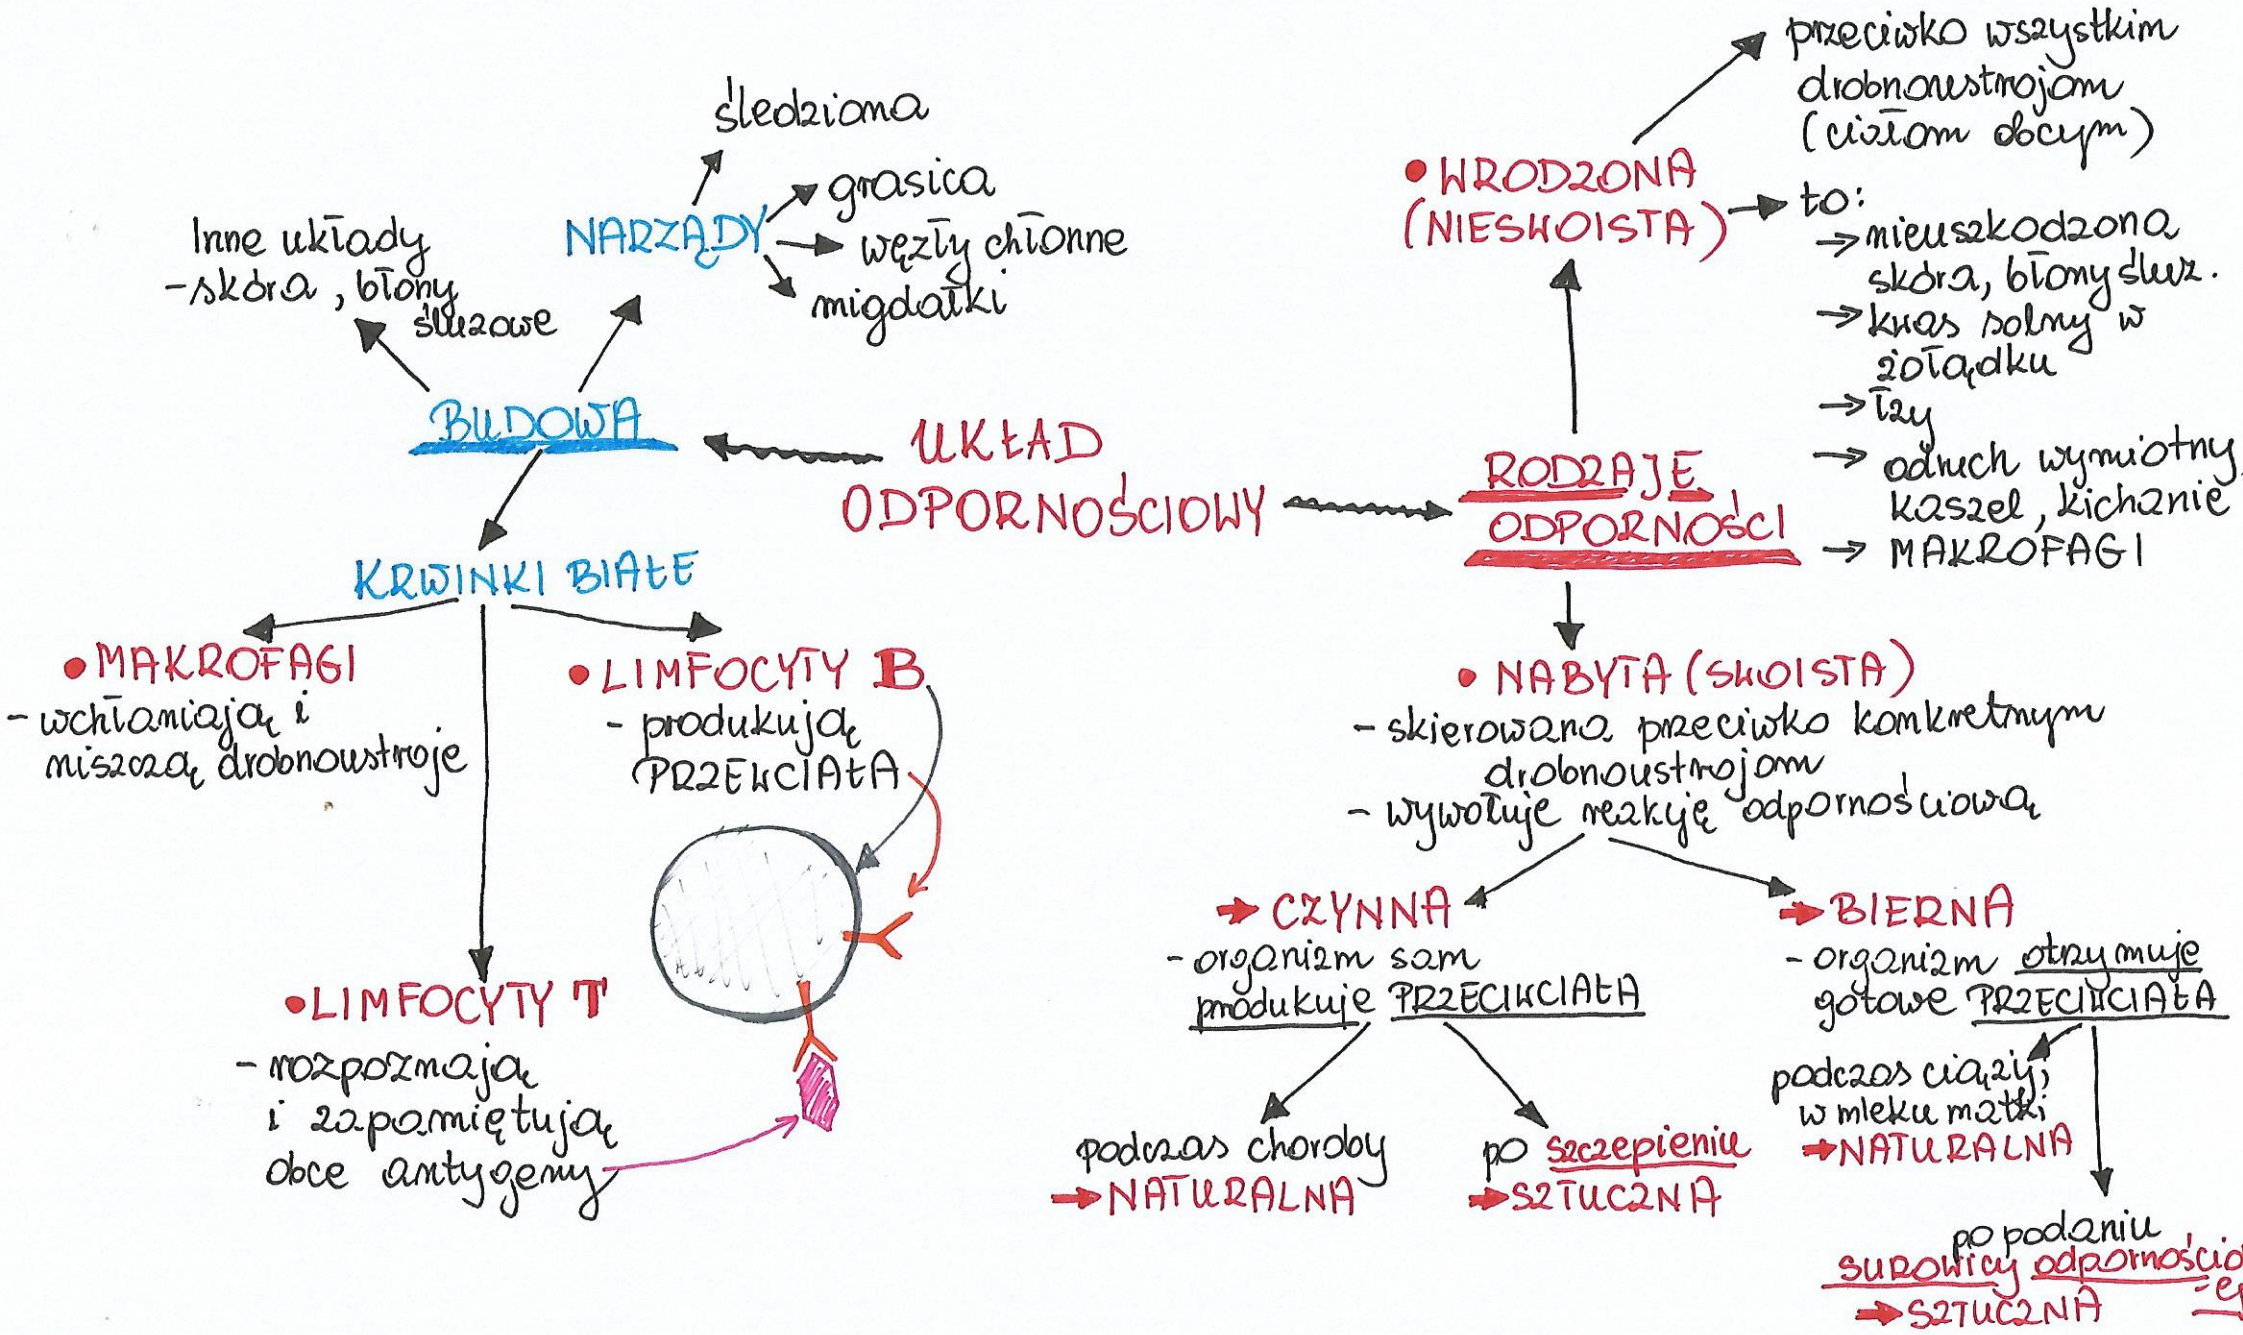 UKŁAD
ODPORNOŚCIOWY
BUDOWA
Inne układy
- skóra, błony
śluzowe
NARZĄDY
śledziona
grasica
węzły chłonne
migdałki
KRWINKI BIAŁE
• MAKROFAGI
- wchłaniają i
niszczą drobnoustroje
• LIMFOCYTY B
- produkują
PRZEWCIAŁA
• LIMFOCYTY T
- rozpoznają
i zapamiętują
obce antygeny
RODZAJE
ODPORNOŚCI
• WRODZONA
(NIESWOISTA)
przeciwko wszystkim
drobnoustrojom
(ciałom obcym)
to:
⇒ nieuszkodzona
skóra, błony śluz.
⇒ kwas solny w
żołądku
⇒ łzy
⇒ odruch wymiotny,
kaszel, kichanie
⇒ MAKROFAGI
• NABYTA (SWOISTA)
- skierowana przeciwko konkretnym
drobnoustrojom
- wywołuje reakcję odpornościową
→ CZYNNA
- organizm sam
produkuje PRZECIWCIAŁA
podczas choroby
→ NATURALNA
po szczepieniu
→ SZTUCZNA
→ BIERNA
- organizm otrzymuje
gotowe PRZECIWCIAŁA
podczas ciąży,
w mleku matki
→ NATURALNA
po podaniu
SUROWICY odpornościo
→ SZTUCZNA